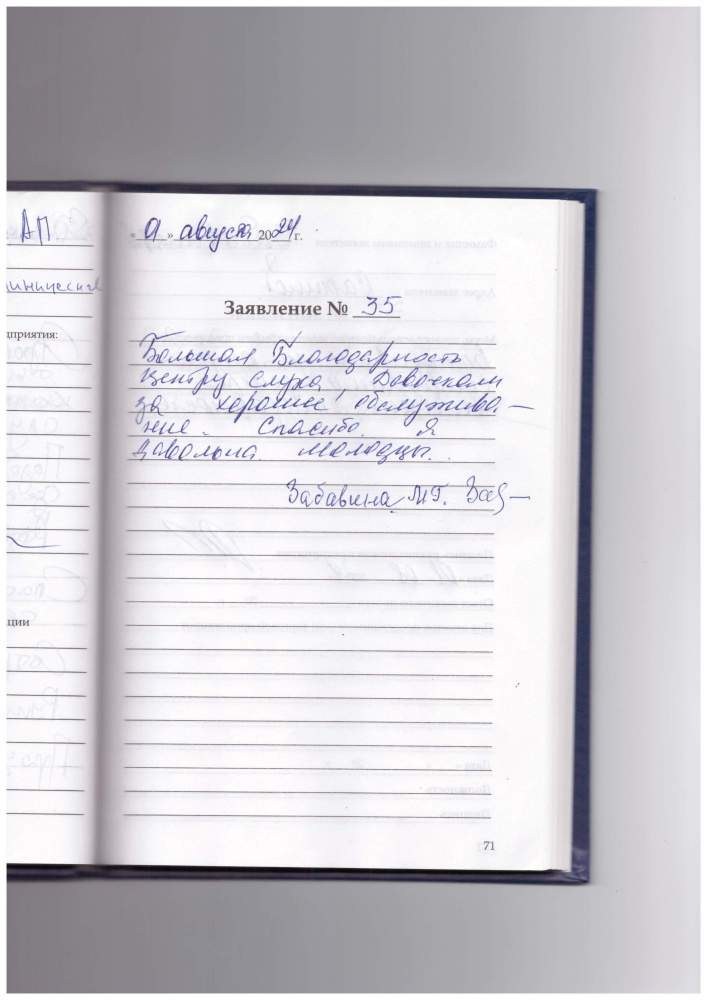 АП
линический
дприятия:
ции
« 9 » августа 2024 г.
Заявление № 35
Большая Благодарность
Центру слуха
за хорошее обслужива-
ние. Спасибо. Я
довольна. Молодцы.
Забавина М.Г.
71